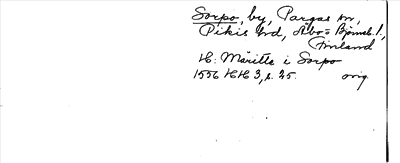 Sorpo, by, Pargas sn,
Pikis hd, Åbo=Björneb. l.,
Finland
H. Märitte i Sorpo
1556 KH 3, s. 25. orig